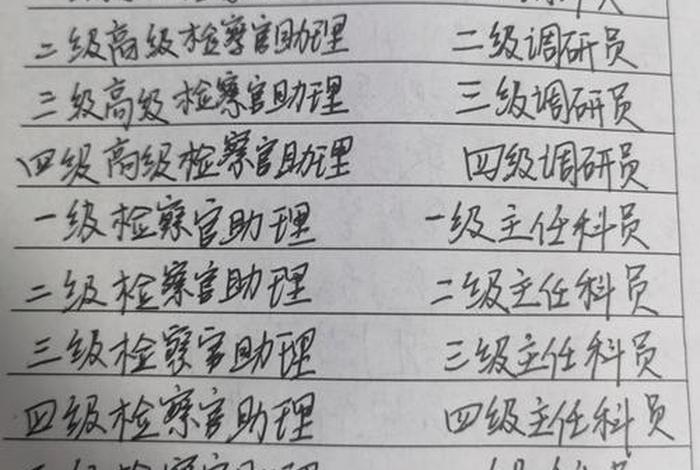 二级高级检察官助理 二级调研员
三级高级检察官助理 三级调研员
四级高级检察官助理 四级调研员
一级检察官助理 一级主任科员
二级检察官助理 二级主任科员
三级检察官助理 三级主任科员
四级检察官助理 四级主任科员